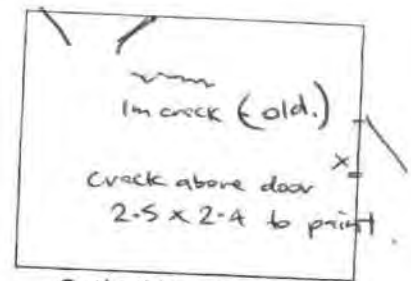 1m crack (old.)
x
crack above door
2.5 x 2.4 to paint.